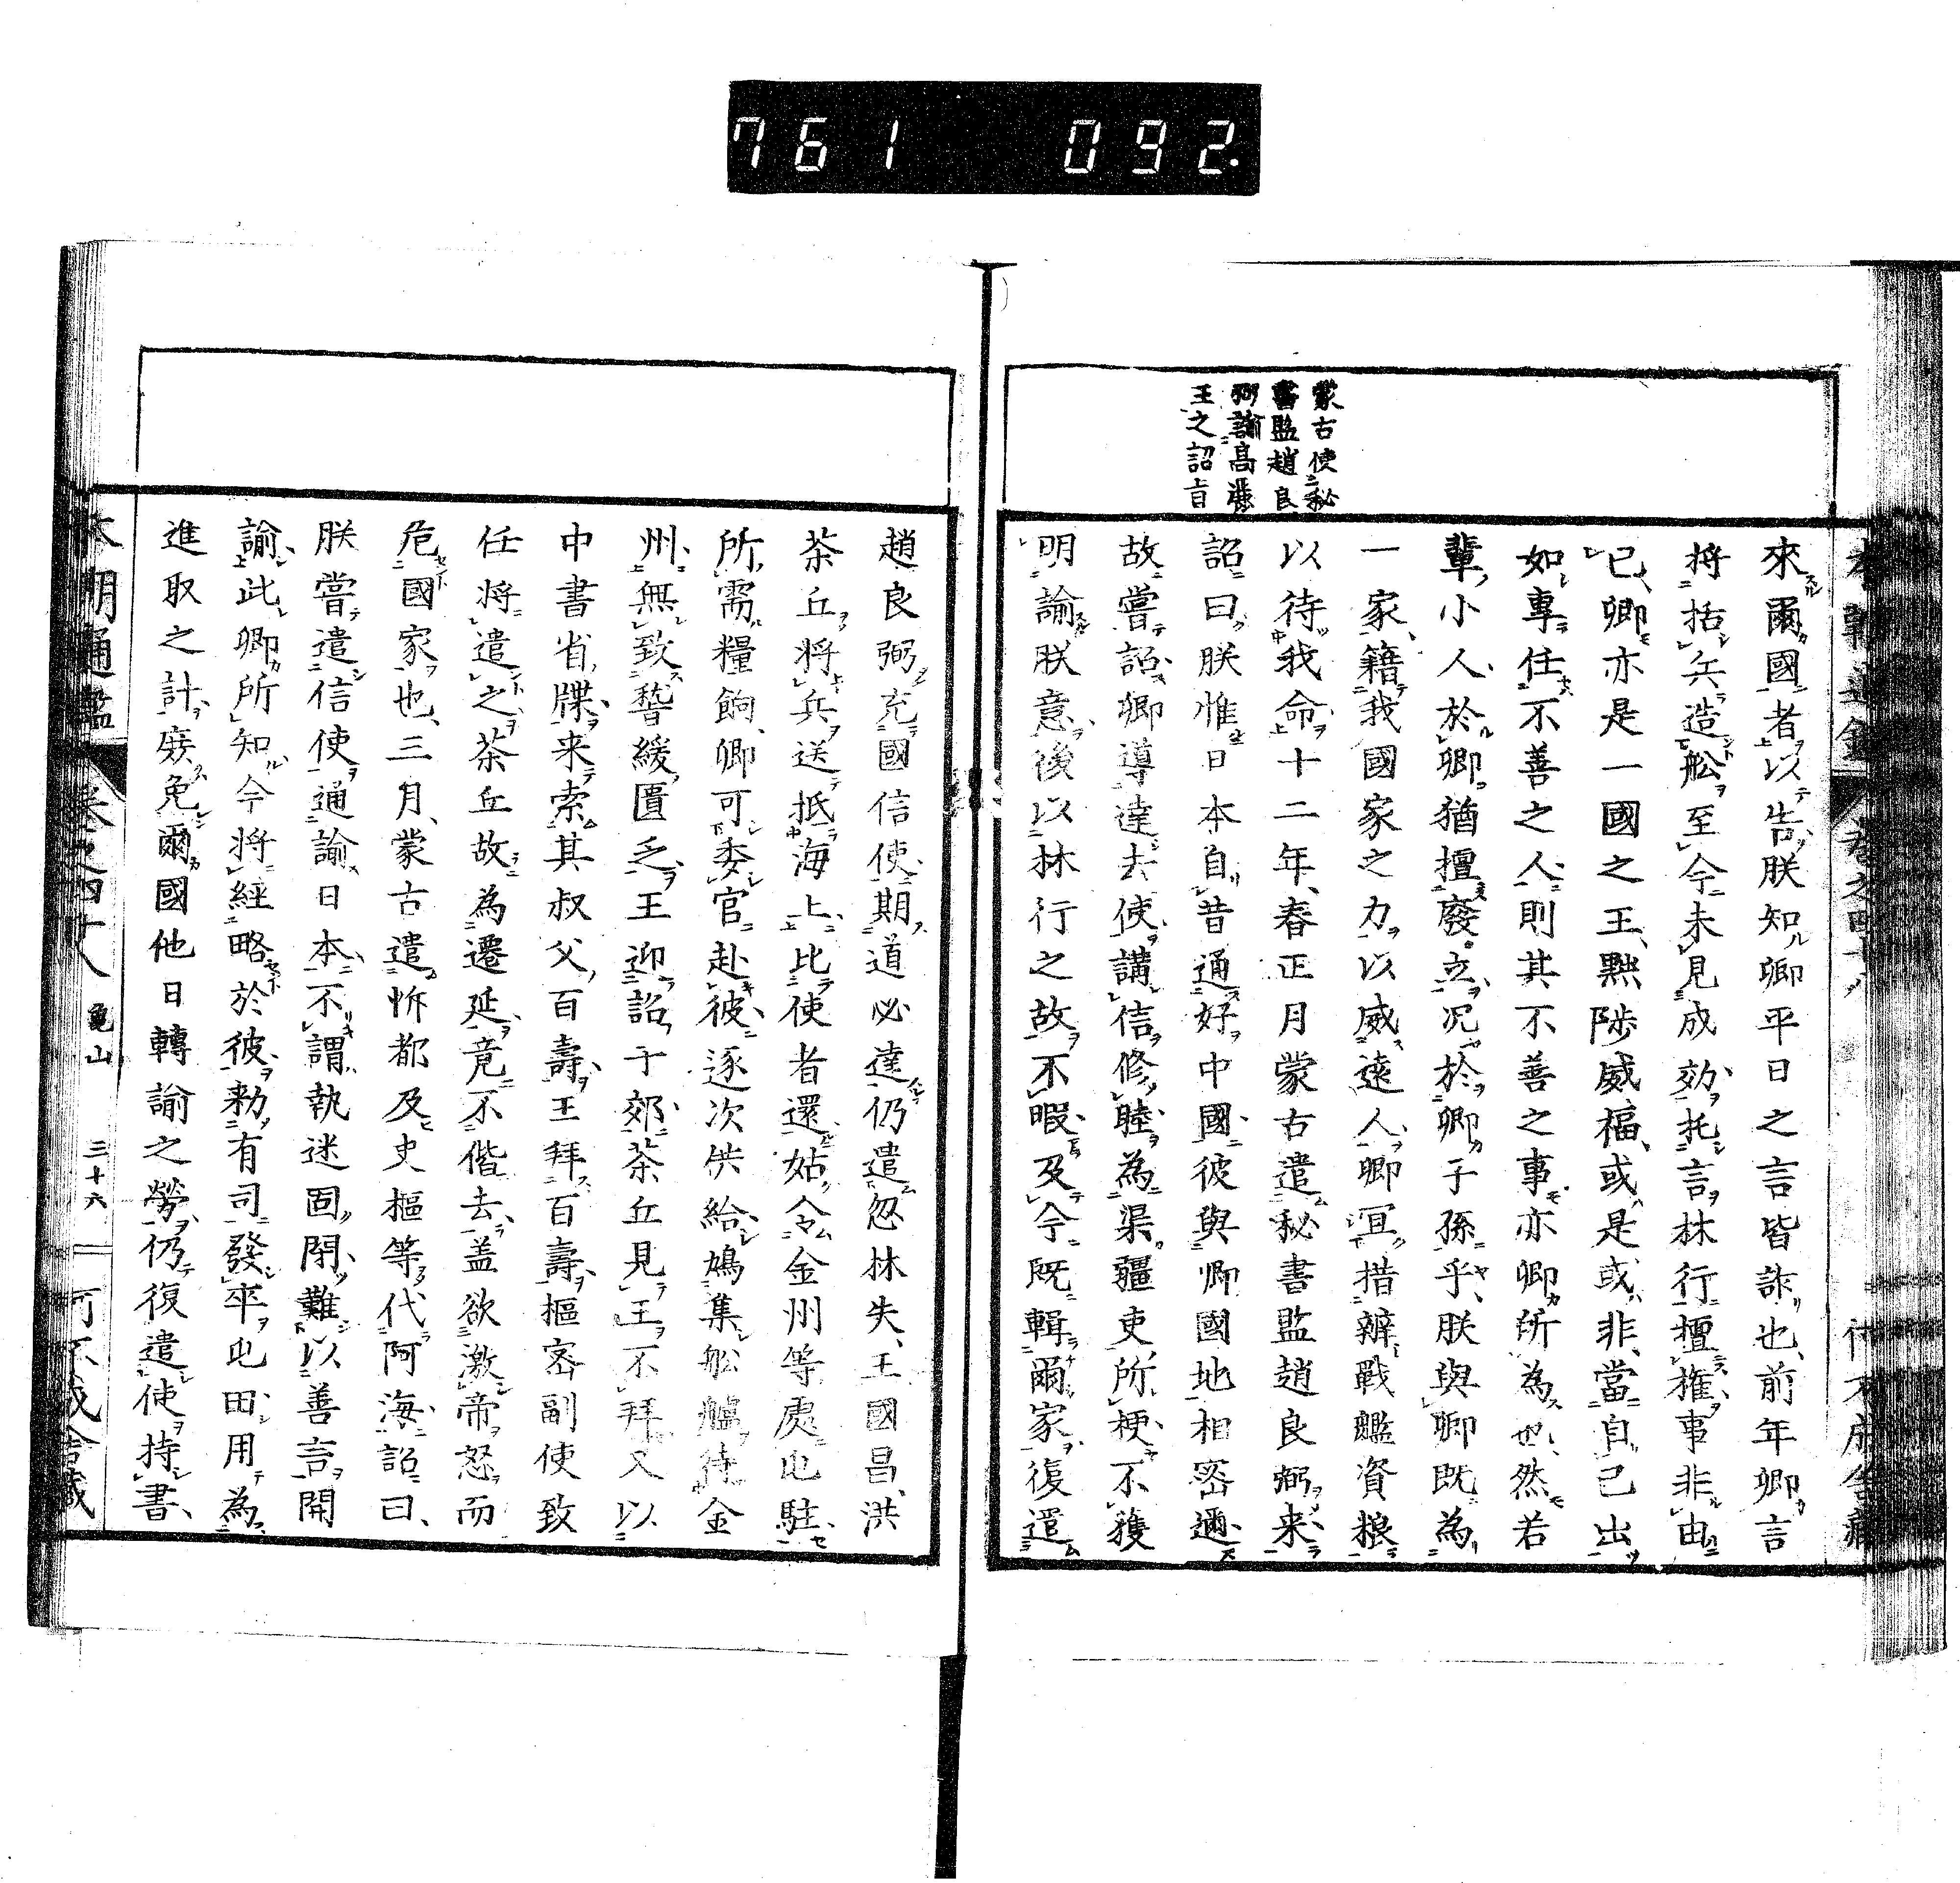 761 092.
蒙古使秘
書監趙良
弼諭高麗
王之詔旨
來爾國者以告朕知卿平日之言皆詐也前年卿言
將括兵造舩至今未見成效托言林衍擅權事非由
已卿亦是一國之王黜陟威福或是或非當自己出
如專任不善之人則其不善之事亦卿所為也然若
輩小人於卿猶擅廢立况於卿子孫乎朕與卿既為
一家籍我國家之力以威遠人卿冝措辦戰艦資粮
以待我命十二年春正月蒙古遣秘書監趙良弼来
詔曰朕惟日本自昔通好中國彼與卿國地相密邇
故嘗詔卿導達去使講信修睦為渠疆吏所梗不獲
明諭朕意後以林衍之故不暇及今既輯爾家復遣
趙良弼充國信使期道必達仍遣忽林失王國昌洪
茶丘將兵送抵海上比使者還姑令金州等處屯駐
所需糧餉卿可委官赴彼逐次供給鳩集舩艫待金
州無致稽緩匱乏王迎詔于郊茶丘見王不拜又以
中書省牒来索其叔父百壽王拜百壽樞密副使致
任將遣之茶丘故為遷延竟不偕去盖欲激帝怒而
危國家也三月蒙古遣忻都及史樞等代阿海詔曰
朕嘗遣信使通諭日本不謂執迷固閉難以善言開
諭此卿所知今將經略於彼勑有司發卒屯田用為
進取之計庶免爾國他日轉諭之勞仍復遣使持書
本朝通鑑 卷之四十八 龜山 三十六